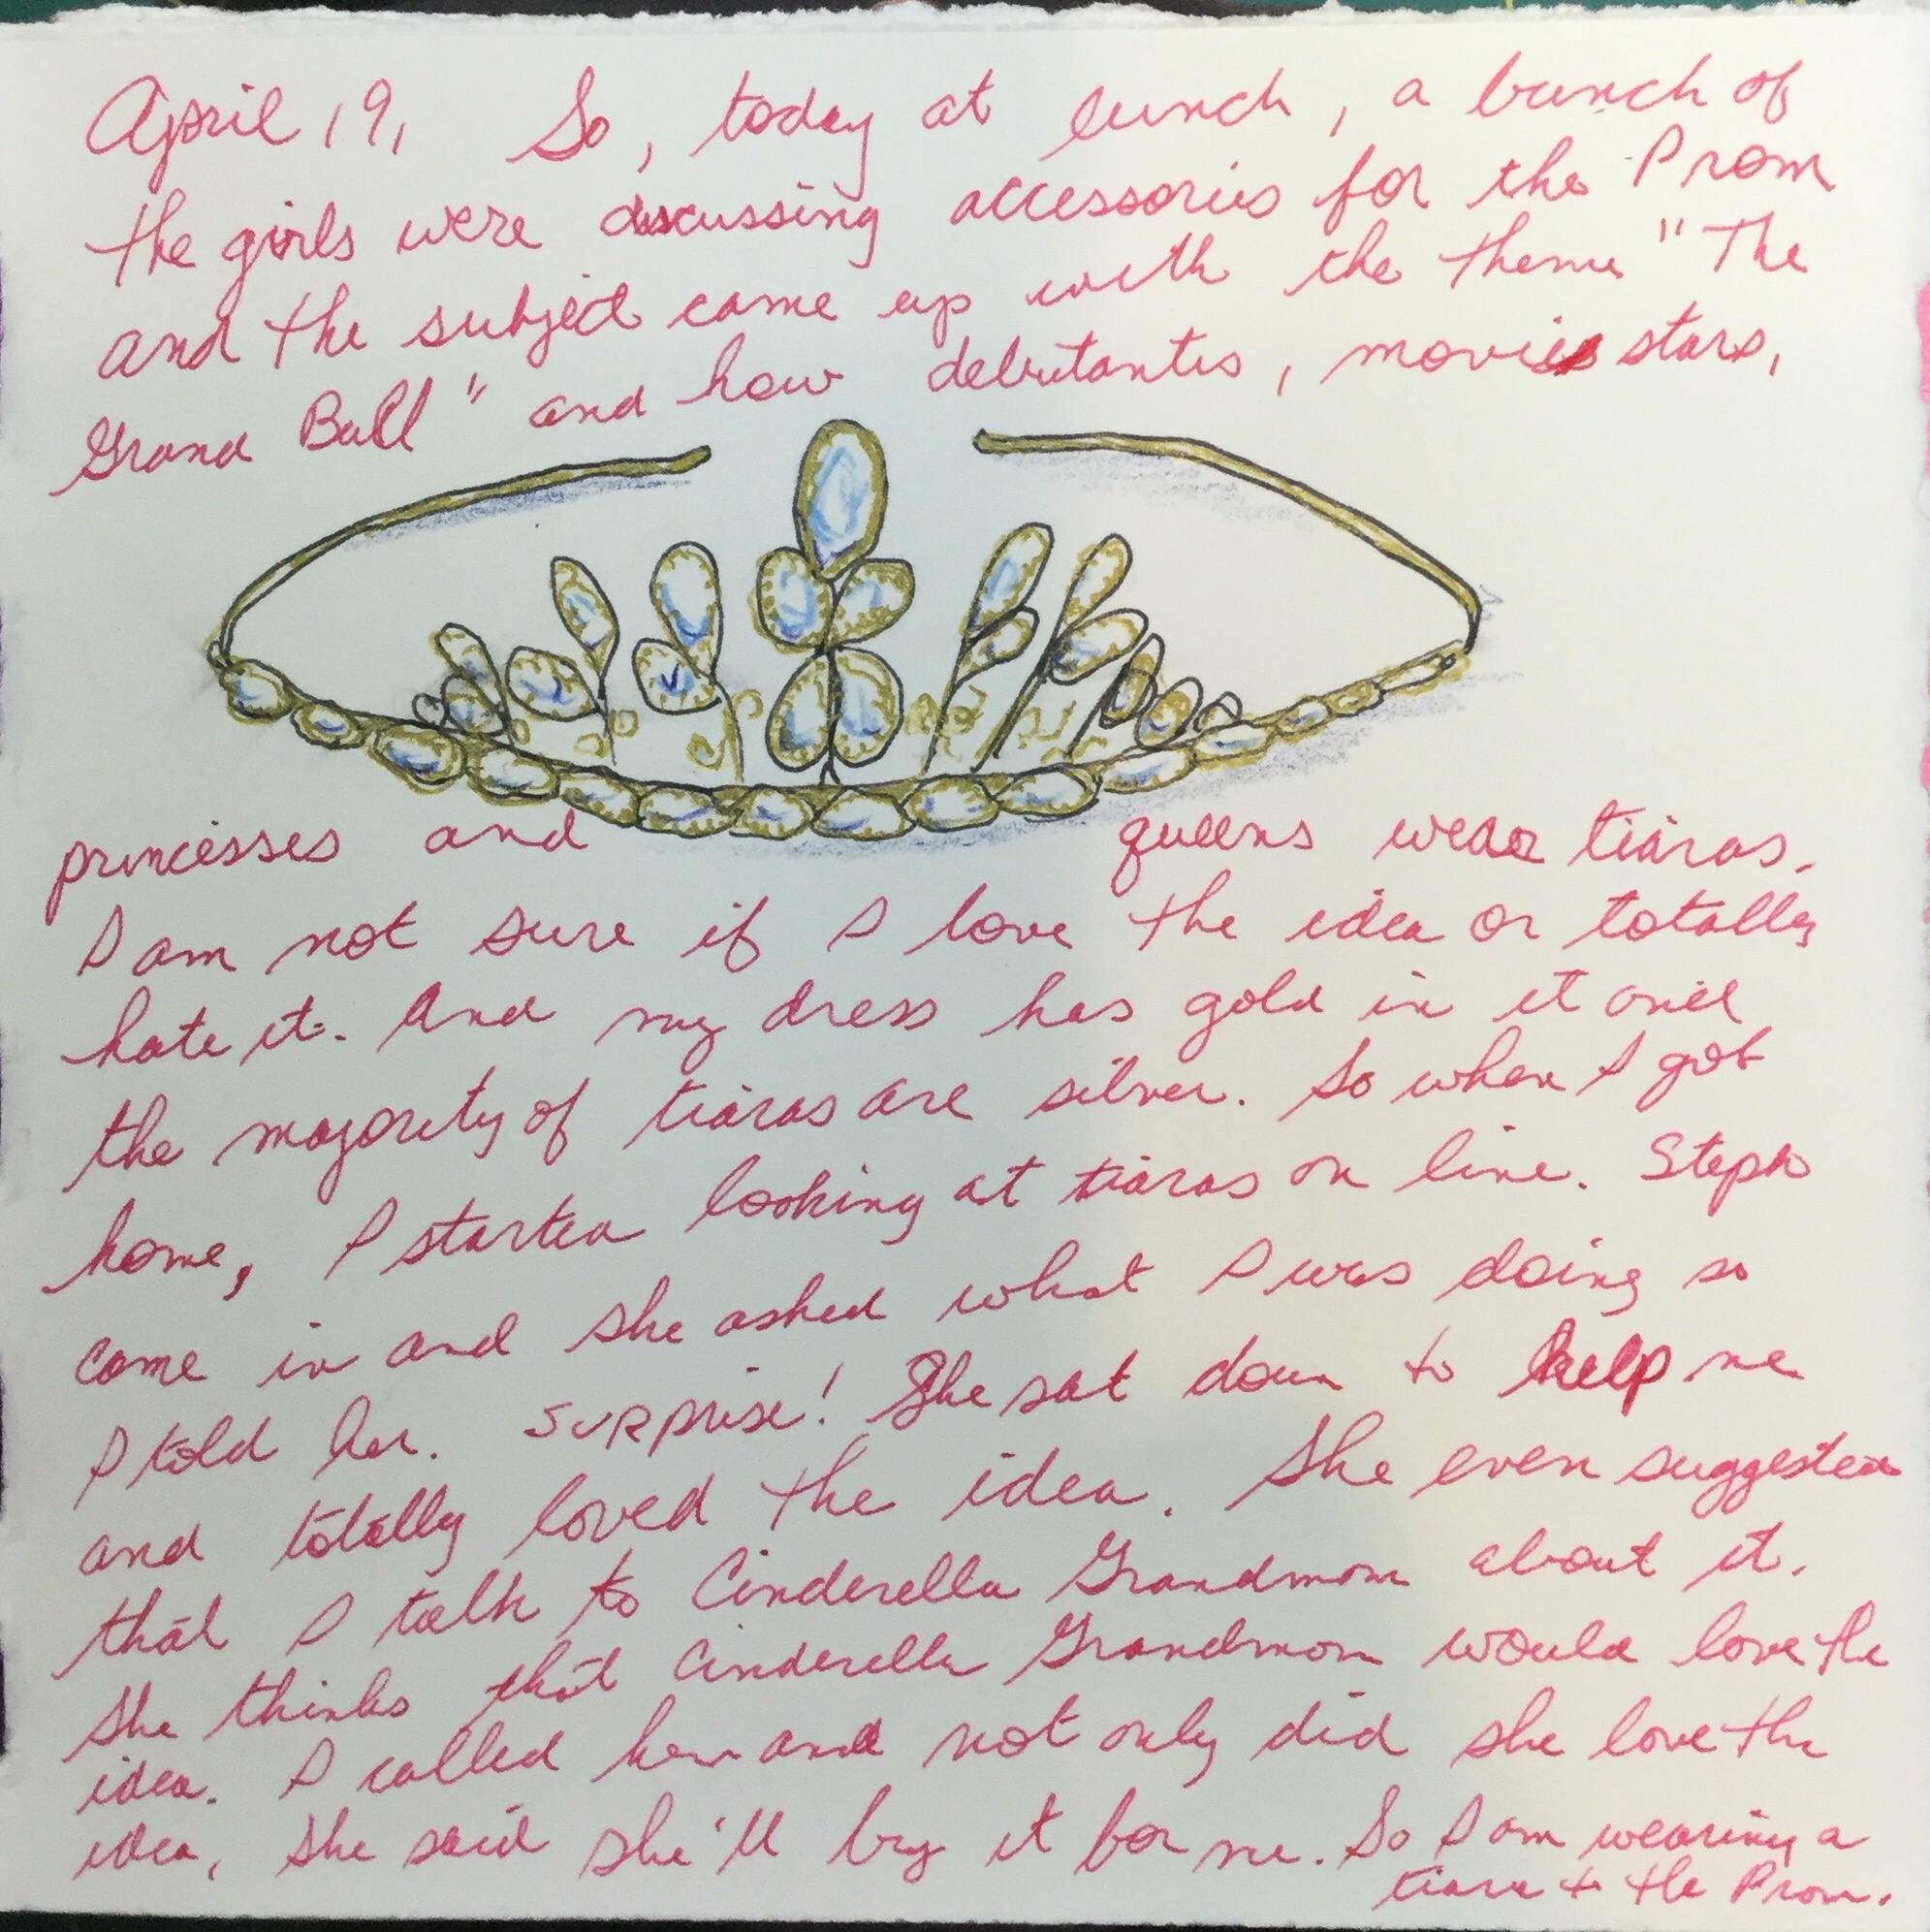 April 19, So, today at lunch, a bunch of
the girls were discussing accessories for the Prom
and the subject came up with the theme "The
Grand Ball" and how debutantes, movie stars,
princesses and queens wear tiaras.
I am not sure if I love the idea or totally
hate it. And my dress has gold in it and
the majority of tiaras are silver. So when I got
home, I started looking at tiaras on line. Steph
came in and she asked what I was doing so
I told her. Surprise! She sat down to help me
and totally loved the idea. She even suggested
that I talk to Cinderella Grandmom about it.
She thinks that Cinderella Grandmom would love the
idea. I called her and not only did she love the
idea, she said she'll buy it for me. So I am wearing a
tiara to the Prom.